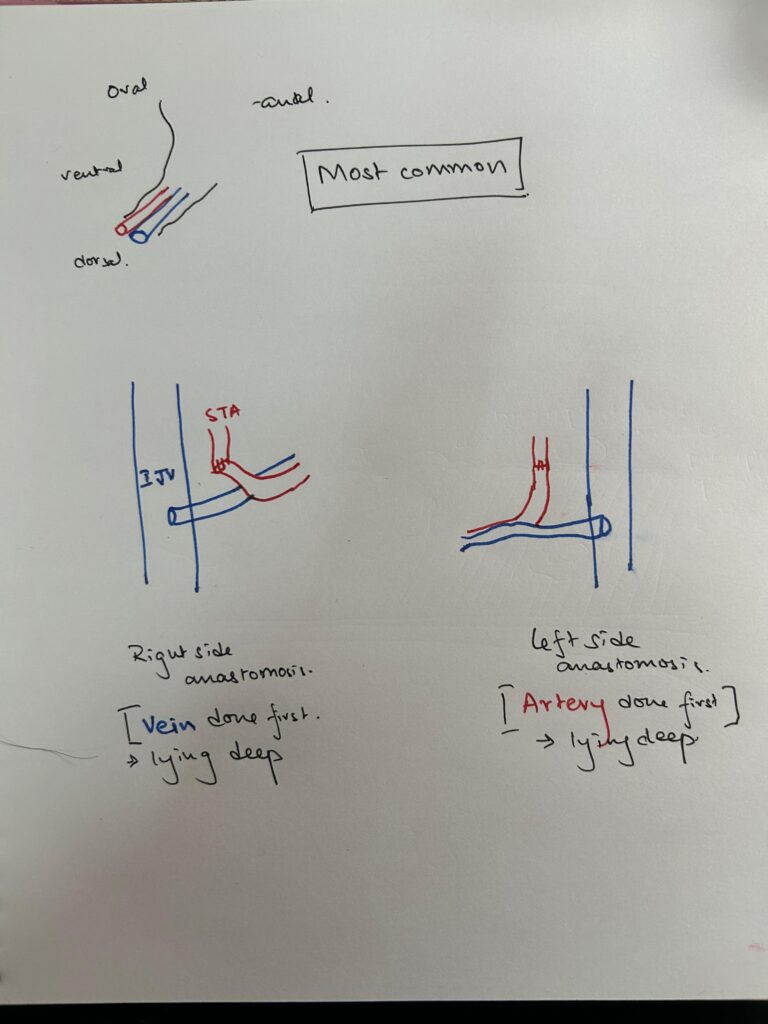 Oval
Most common
ventral
dorsal.
STA
IJV
Right side
anastomosis.
[Vein done first.
→ lying deep
left side
anastomosis.
[Artery done first]
→ lying deep